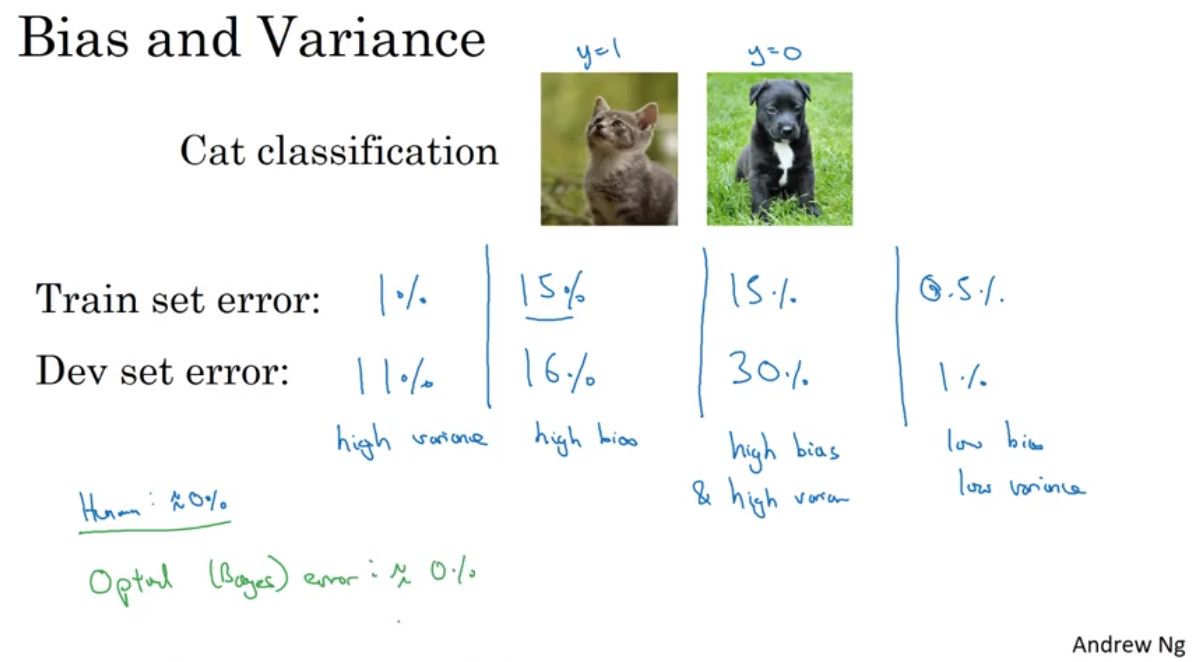 Bias and Variance
y=1 y=0
Cat classification
Train set error: 1% 15% 15% 0.5%
Dev set error: 11% 16% 30% 1%
high variance high bias high bias low bias
& high varian low variance
Human: ≈0%
Optimal (Bayes) error: ≈ 0%
Andrew Ng